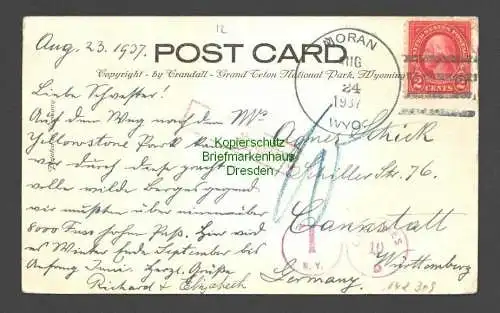 12
Aug. 23. 1937.
POST CARD
Copyright - by Crandall - Grand Teton National Park, Wyoming
MORAN
AUG
24
1937
WYO.
UNITED STATES POSTAGE
2 CENTS 2
Liebe Schwester!
Auf dem Weg nach dem
Yellowstone Park
wir durch diese
volle wilde Berges gegend
wir mußten über
8000 Fuss hohen Pass. Hier wird
es Winter Ende September bis
Anfang Juni. Herzl. Grüße
Richard & Elizabeth
Kopierschutz
Briefmarkenhaus
Dresden
Schick
Schiller Str. 76,
Cannstatt
Württemberg
Germany.
N.Y.
10
142 309